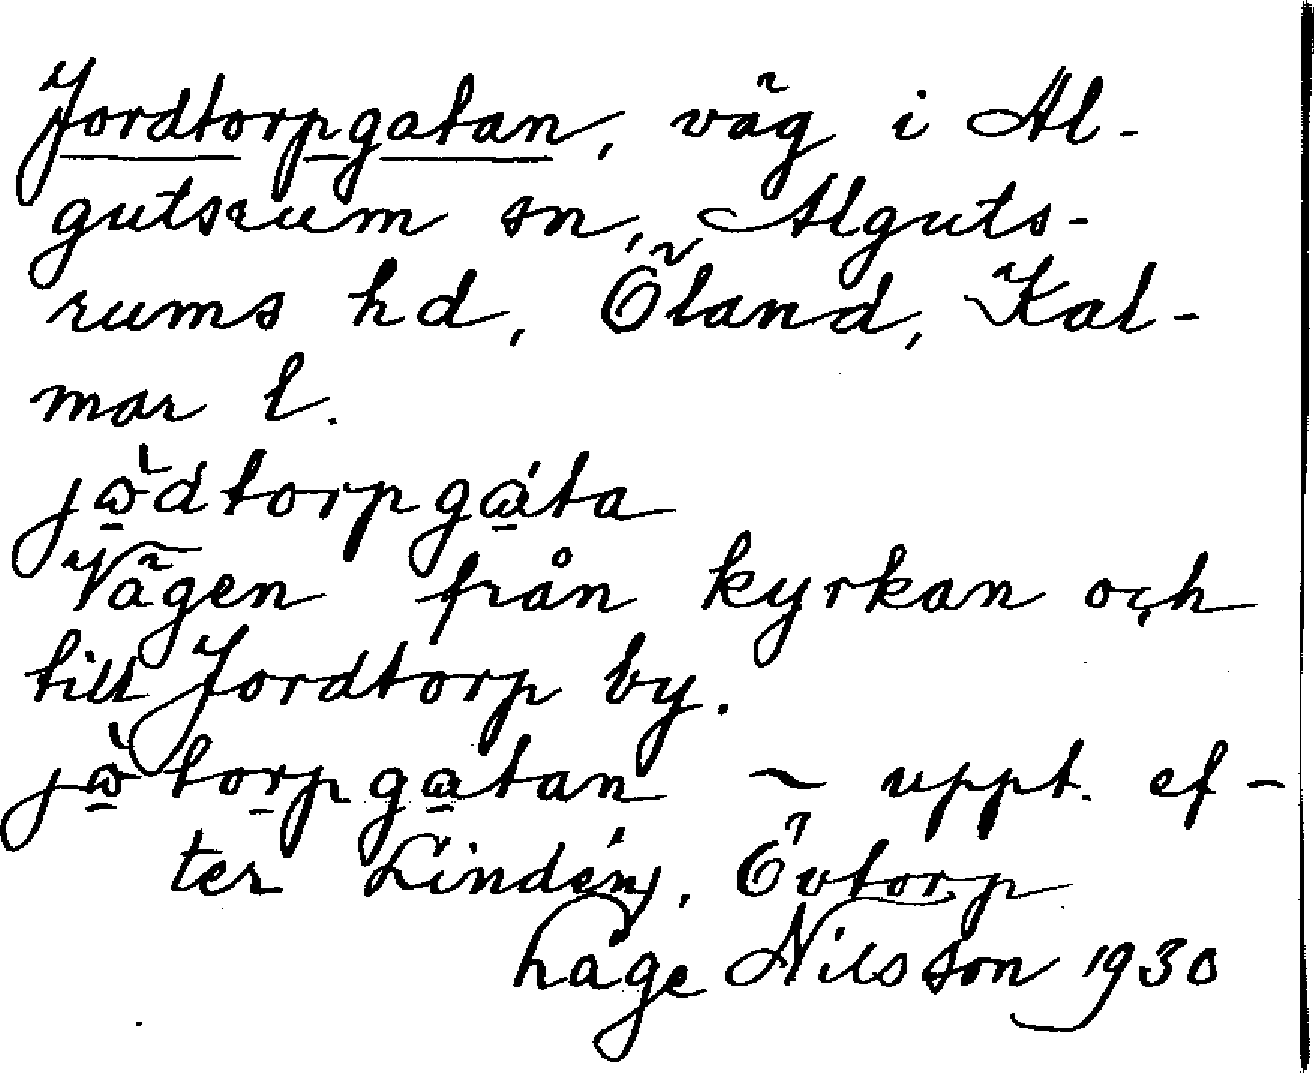 Jordtorpgatan, väg i Al-
gutsrum sn, Alguts-
rums hd, Öland, Kal-
mar l.
jò̱dtorpgá̱ta
Vägen från kyrkan och
till Jordtorp by.
jò̱to̱rpga̱tan ~ uppt. ef-
ter Lindén, Övtorp
Håge Nilsson 1930